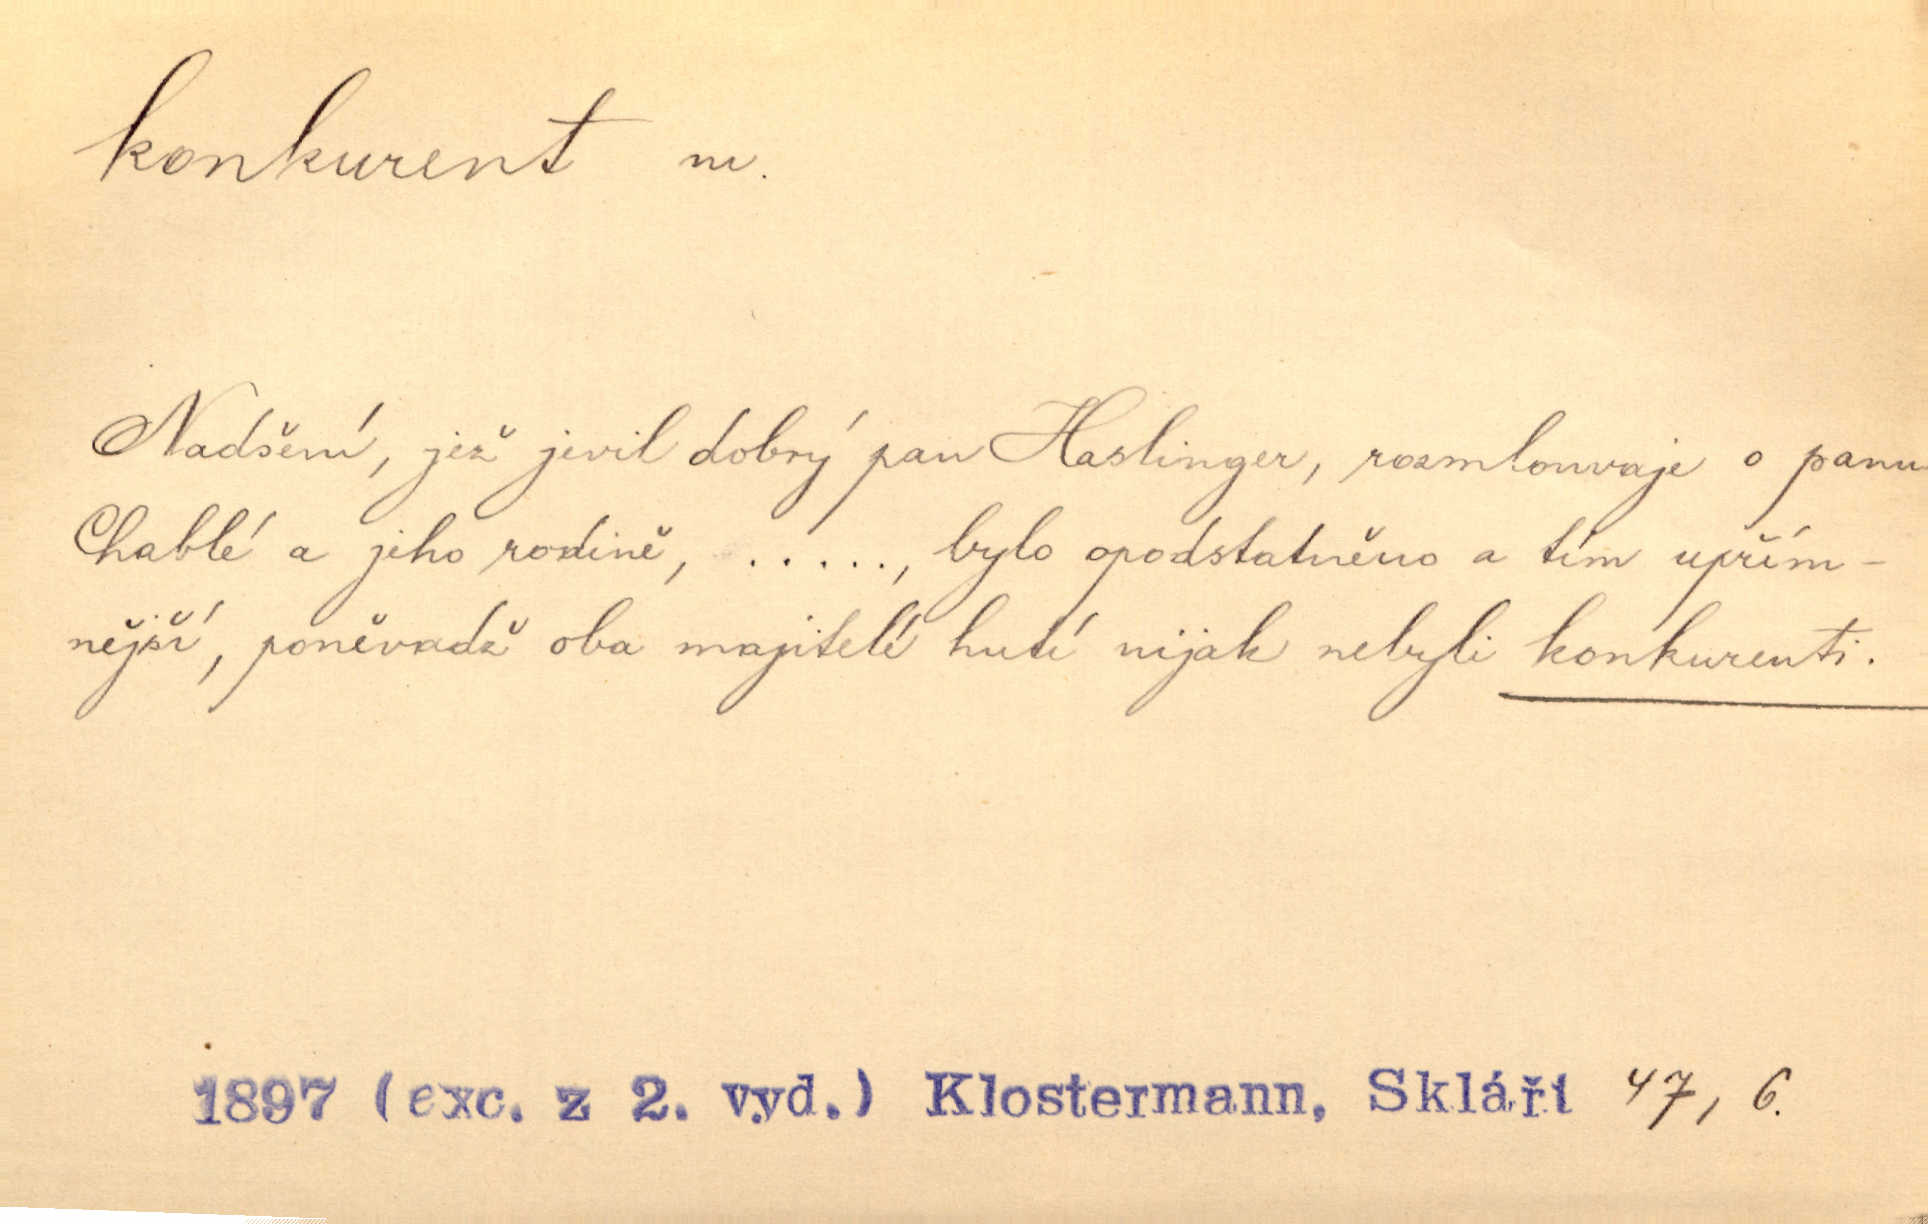 konkurent m.
Nadšení, jež jevil dobrý pan Haslinger, rozmlouvaje o panu
Chablé a jeho rodině, ....., bylo opodstatněno a tím upřím-
nější, poněvadž oba majitelé hutí nijak nebyli konkurenti.
1897 (exc. z 2. vyd.) Klostermann, Skláři 47, 6.